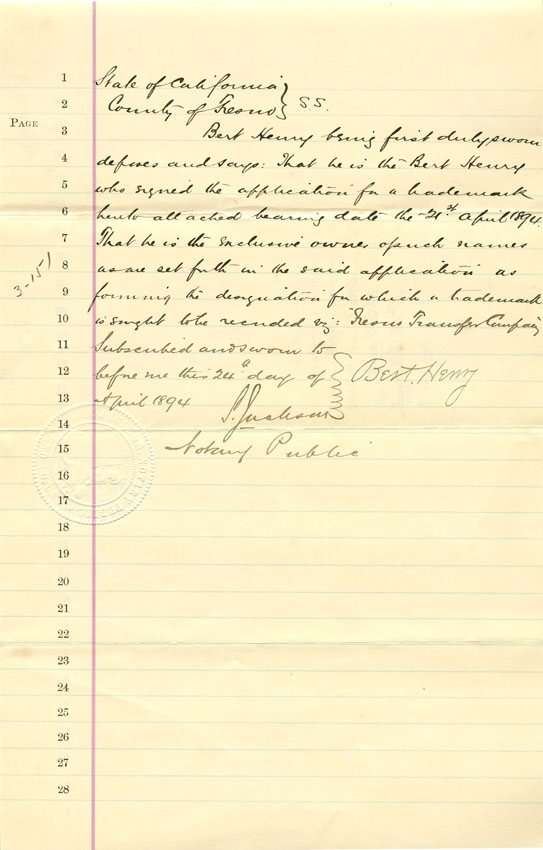 1 State of California }
2 County of Fresno } S.S.
PAGE
3 Bert Henry being first duly sworn
4 deposes and says: That he is the Bert Henry
5 who signed the application for a trademark
6 hereto attached bearing date the 21st April 1894.
7 That he is the exclusive owner of such names
8 as are set forth in the said application as
3-151
9 forming the designation for which a trademark
10 is sought to be recorded viz: Fresno Transfer Company
11 Subscribed and sworn to
12 before me this 24th day of } Bert. Henry
13 April 1894 S. Jackson
14
15 Notary Public
16
17
18
19
20
21
22
23
24
25
26
27
28